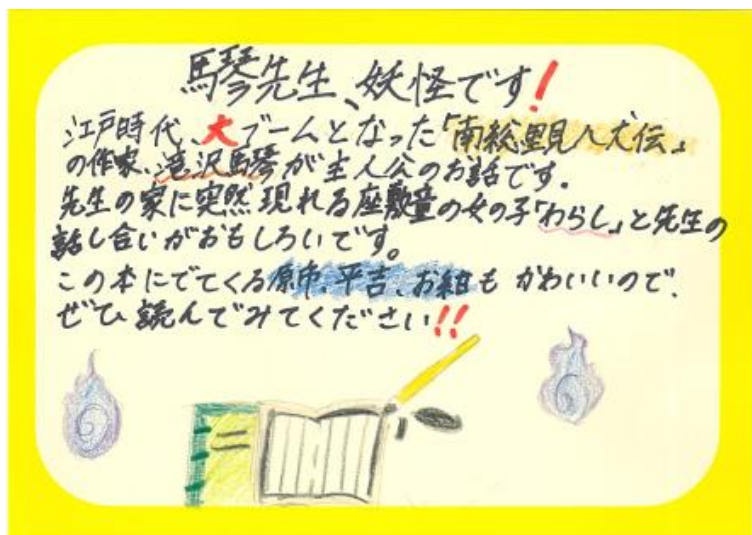 馬琴先生、妖怪です!
江戸時代、大ブームとなった「南総里見八犬伝」
の作家、滝沢馬琴が主人公のお話です。
先生の家に突然現れる座敷童の女の子「わらし」と先生の
話し合いがおもしろいです。
この本にでてくる原市、平吉、お紺もかわいいので、
ぜひ読んでみてください!!